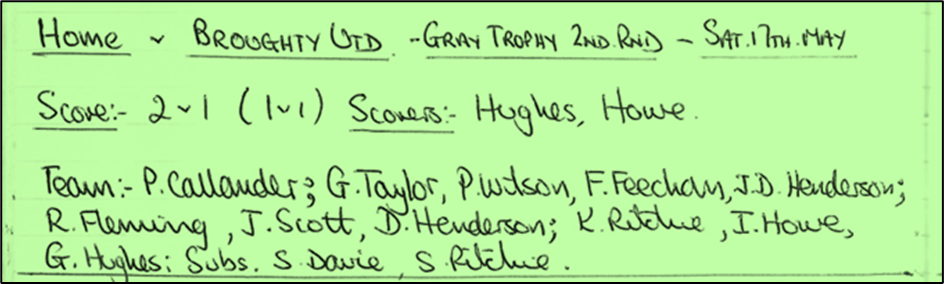 Home v BROUGHTY UTD. - GRAY TROPHY 2ND. RND - SAT. 17TH. MAY
Score:- 2 v 1 ( 1 v 1 ) Scorers:- Hughes, Howe.
Team:- P. Callander; G. Taylor, P. Wilson, F. Feechan, J.D. Henderson;
R. Fleming, J. Scott, D. Henderson; K. Ritchie, I. Howe,
G. Hughes: Subs. S. Davie, S. Ritchie.